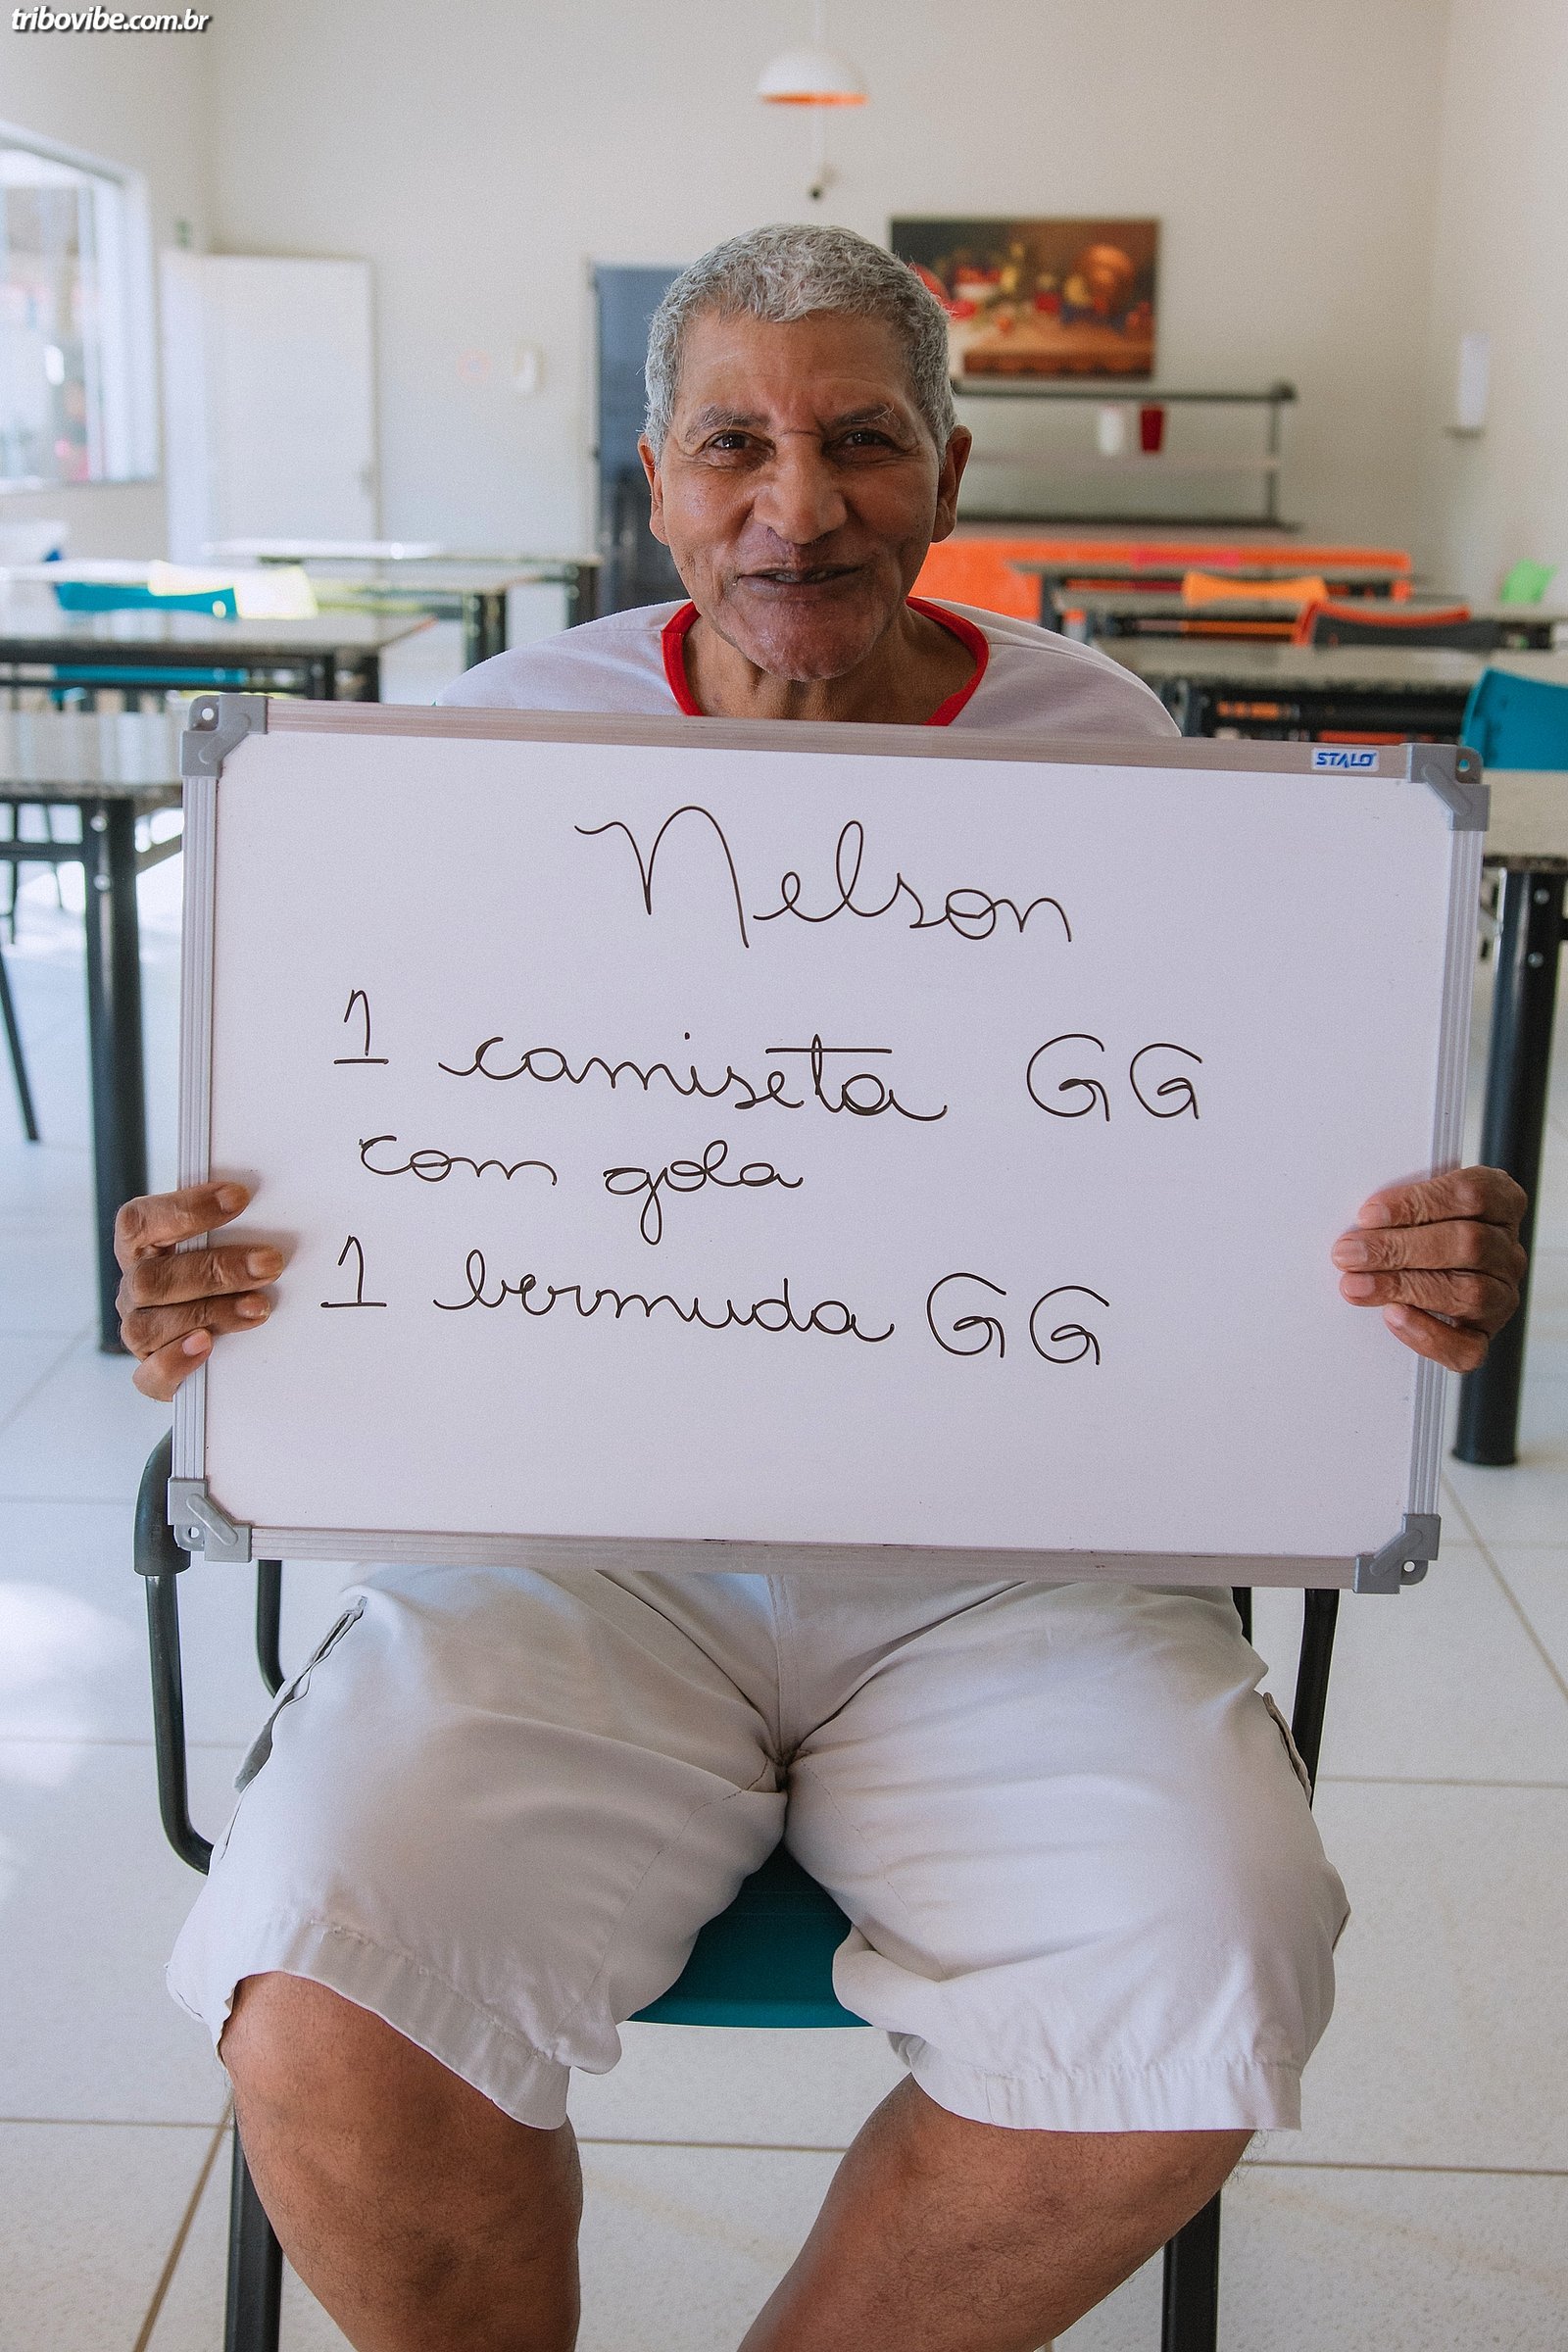 tribovibe.com.br
STALO
Nelson
1 camiseta GG
com gola
1 bermuda GG